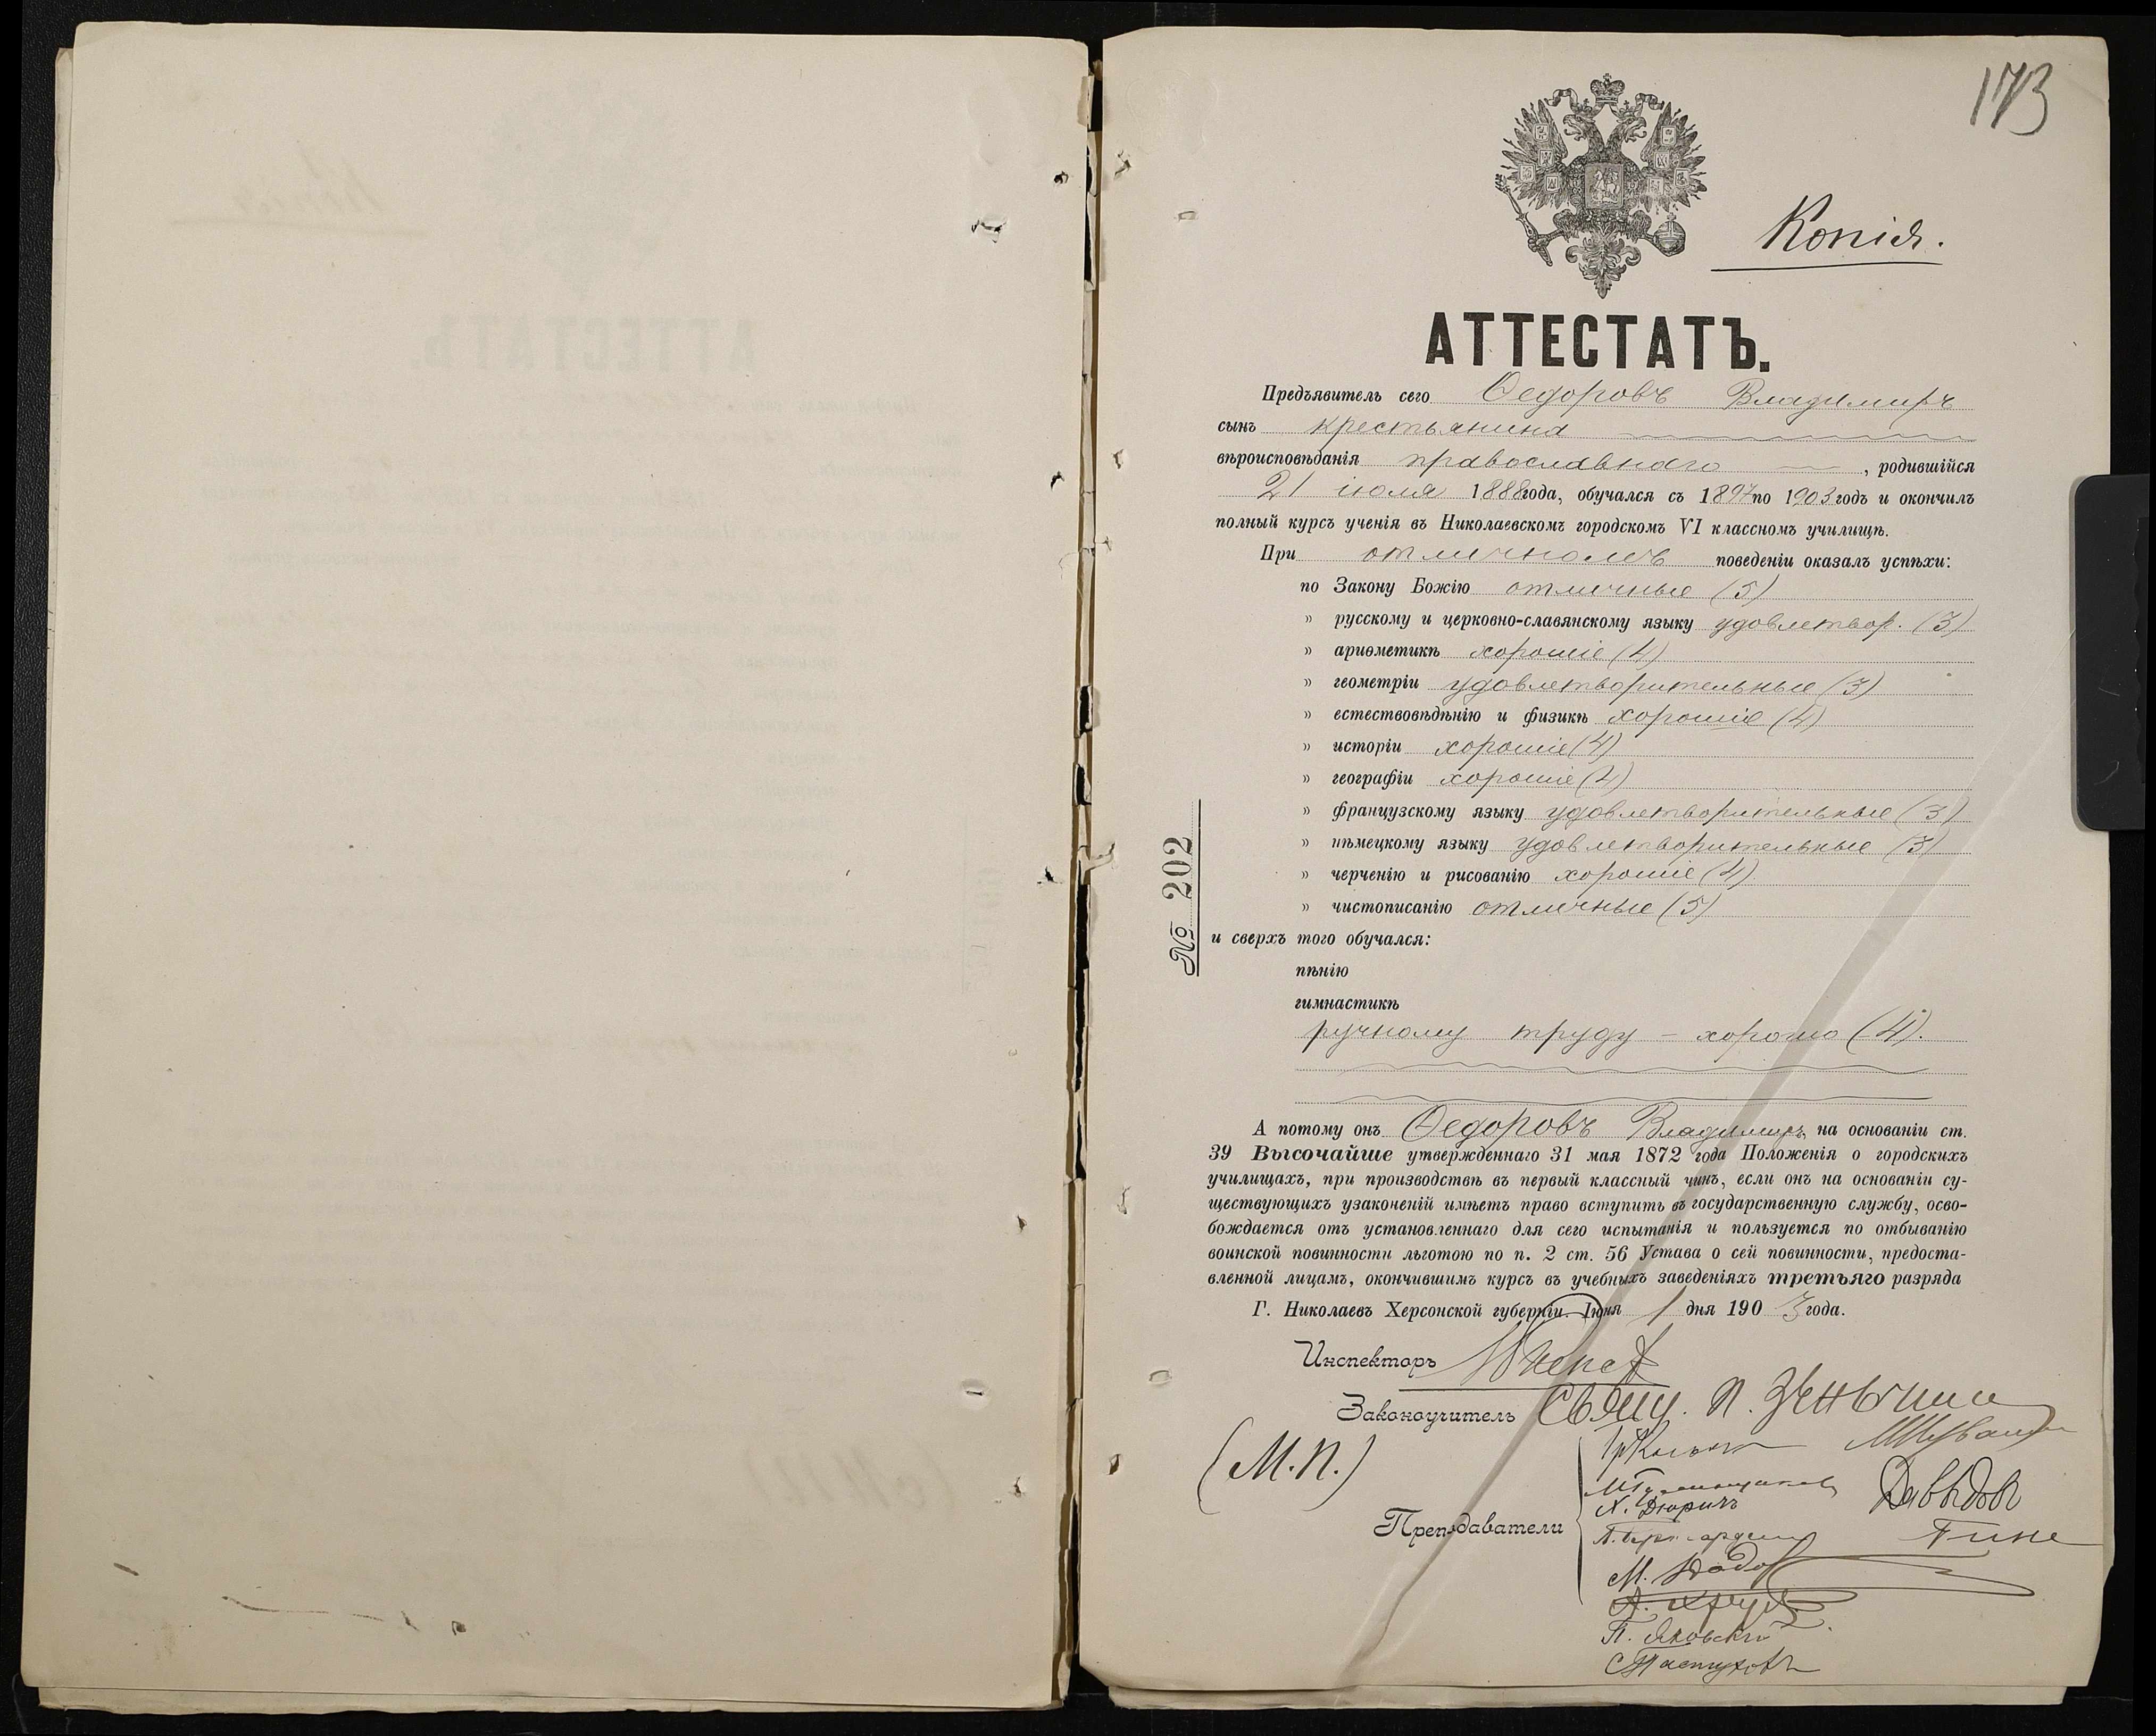 173
Копія.
АТТЕСТАТЪ.
Предъявитель сего Ѳедоровъ Владимиръ
сынъ крестьянина
вѣроисповѣданія православнаго , родившійся
21 іюля 1888 года, обучался съ 1897 по 1903 годъ и окончилъ
полный курсъ ученія въ Николаевскомъ городскомъ VI классномъ училищѣ.
При отличномъ поведеніи оказалъ успѣхи:
по Закону Божію отличные (5)
» русскому и церковно-славянскому языку удовлетвор. (3)
» ариѳметикѣ хорошіе (4)
» геометріи удовлетворительные (3)
» естествовѣдѣнію и физикѣ хорошіе (4)
» исторіи хорошіе (4)
» географіи хорошіе (4)
» французскому языку удовлетворительные (3)
» нѣмецкому языку удовлетворительные (3)
» черченію и рисованію хорошіе (4)
» чистописанію отличные (5)
и сверхъ того обучался:
пѣнію
гимнастикѣ
ручному труду – хорошо (4).
№ 202
А потому онъ Ѳедоровъ Владимиръ, на основаніи ст.
39 Высочайше утвержденнаго 31 мая 1872 года Положенія о городскихъ
училищахъ, при производствѣ въ первый классный чинъ, если онъ на основаніи су-
ществующихъ узаконеній имѣетъ право вступить въ государственную службу, осво-
бождается отъ установленнаго для сего испытанія и пользуется по отбыванію
воинской повинности льготою по п. 2 ст. 56 Устава о сей повинности, предоста-
вленной лицамъ, окончившимъ курсъ въ учебныхъ заведеніяхъ третьяго разряда
Г. Николаевъ Херсонской губерніи. Іюня 1 дня 1903 года.
Инспекторъ
Законоучитель Свящ. П.
(М.П.)
Преподаватели
Х. Дюричъ
Давыдовъ
М.
А.
П. Яковскій
С Пастуховъ